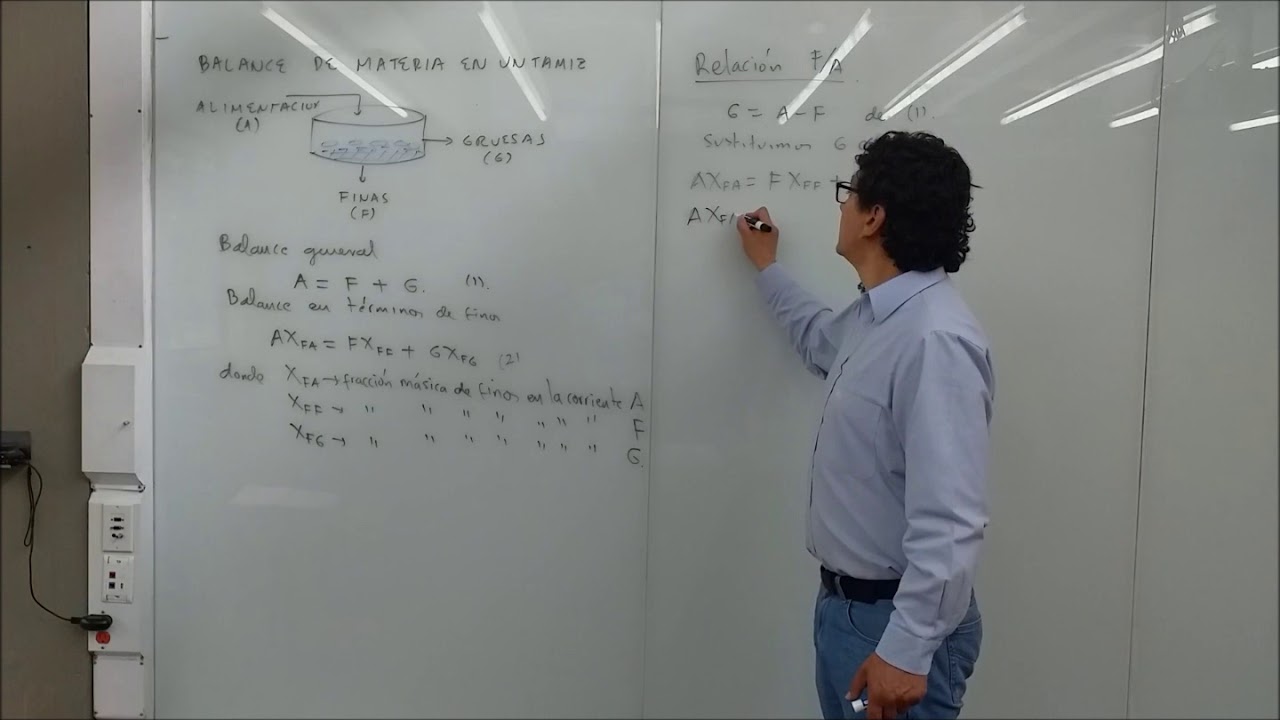 BALANCE DE MATERIA EN UN TAMIZ
ALIMENTACION
(A)
GRUESAS
(G)
FINAS
(F)
Balance general
A = F + G. (1).
Balance en términos de finos
AX_FA = FX_FF + GX_FG (2)
donde X_FA → fracción másica de finos en la corriente A
X_FF → " " " " " " " F
X_FG → " " " " " " " G.
Relación F/A
G = A - F de (1).
Sustituimos G
AX_FA = F X_FF +
AX_FA